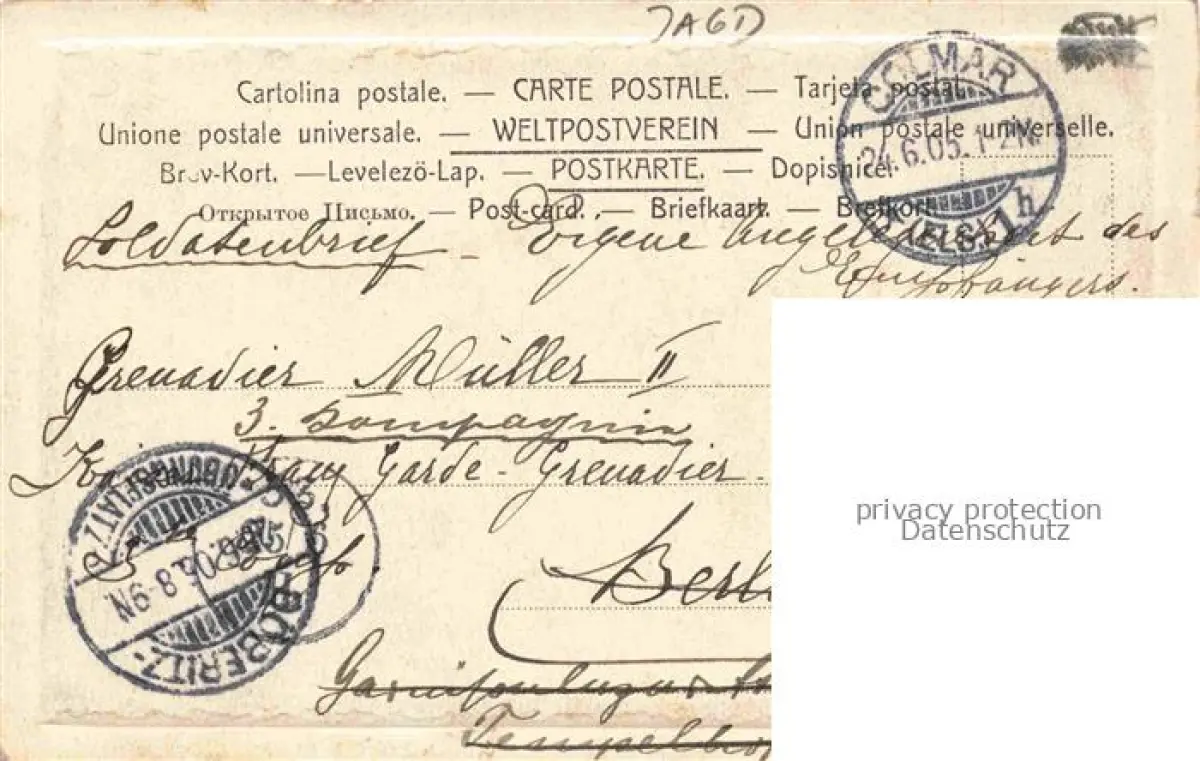 JAGD
Cartolina postale. — CARTE POSTALE. — Tarjeta postal.
Unione postale universale. — WELTPOSTVEREIN — Union postale universelle.
Brev-Kort. — Levelező-Lap. — POSTKARTE. — Dopisnice.
Открытое Письмо. — Post-card. — Briefkaart. — Brefkort
COLMAR
24.6.05. 1-2N.
(ELS.) 1 h
Soldatenbrief – Eigene Angelegenheit des
Empfängers.
Grenadier Müller II
3. Kompagnie
Franz Garde-Grenadier
Berl
DÖBERITZ-
ÜBUNGSPLATZ
8-9N
Garnisonlazarett
Tempelho
privacy protection
Datenschutz